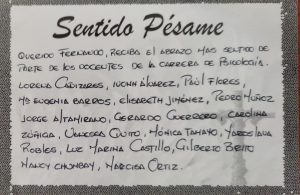 Sentido Pésame
QUERIDO FERNANDO, RECIBA EL ABRAZO MAS SENTIDO DE
PARTE DE LOS DOCENTES DE LA CARRERA DE PSICOLOGÍA.
LORENA CAÑIZARES, IVONN ÁLVAREZ, PAÚL FLORES,
Mª EUGENIA BARROS, ELISABETH JIMÉNEZ, PEDRO MUÑOZ
JORGE ALTAMIRANO, GERARDO GUERRERO, CAROLINA
ZÚÑIGA, VANESSA QUITO, MÓNICA TAMAYO, YAROSLAVA
ROBLES, LUZ MARINA CASTILLO, GILBERTO BRITO
NANCY CHOMBAY, NARCISA ORTIZ.